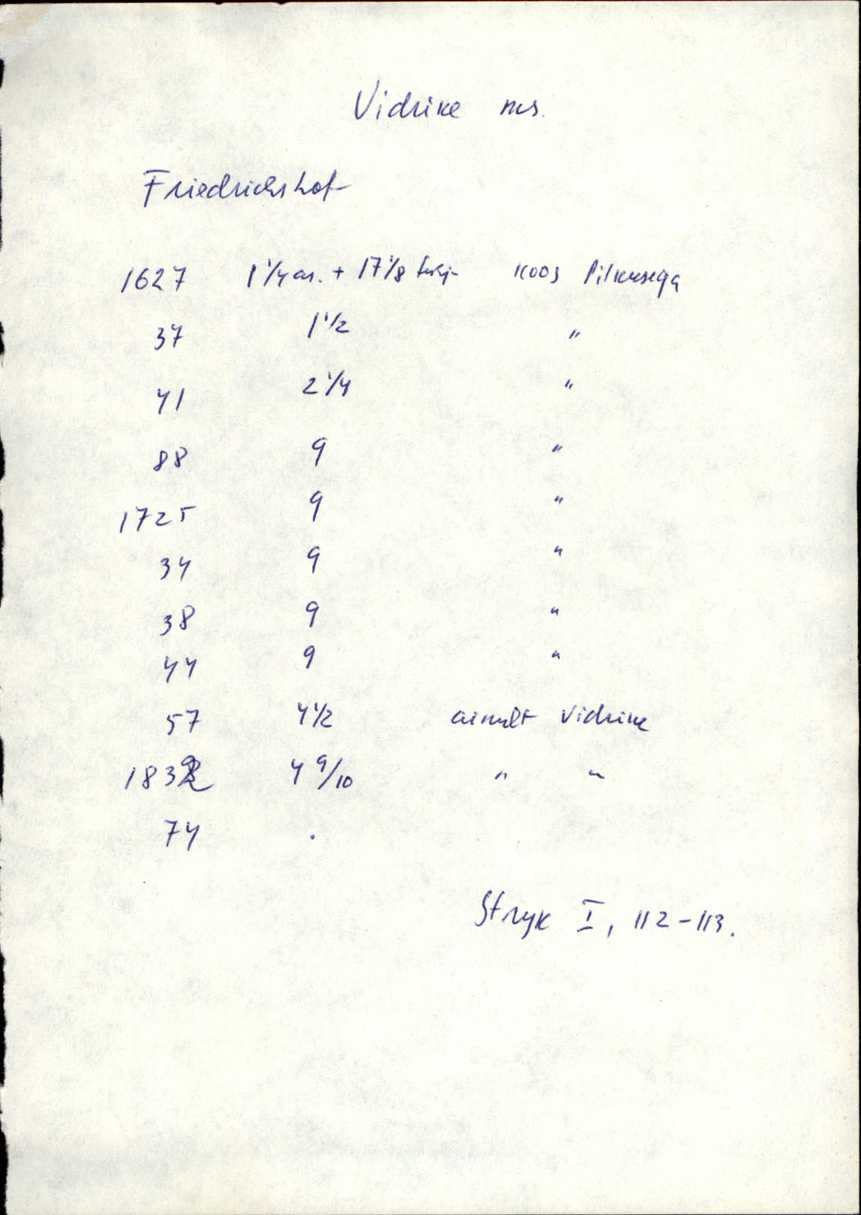 Vidrike ms.
Friedrichshof
1627 1 1/4 as. + 17 1/8 koos Pilkusega
37 1 1/2 "
41 2 1/4 "
88 9 "
1725 9 "
34 9 "
38 9 "
44 9 "
57 4 1/2 ainult Vidrike
1832 4 9/10 " "
74 .
Stryk I, 112-113.